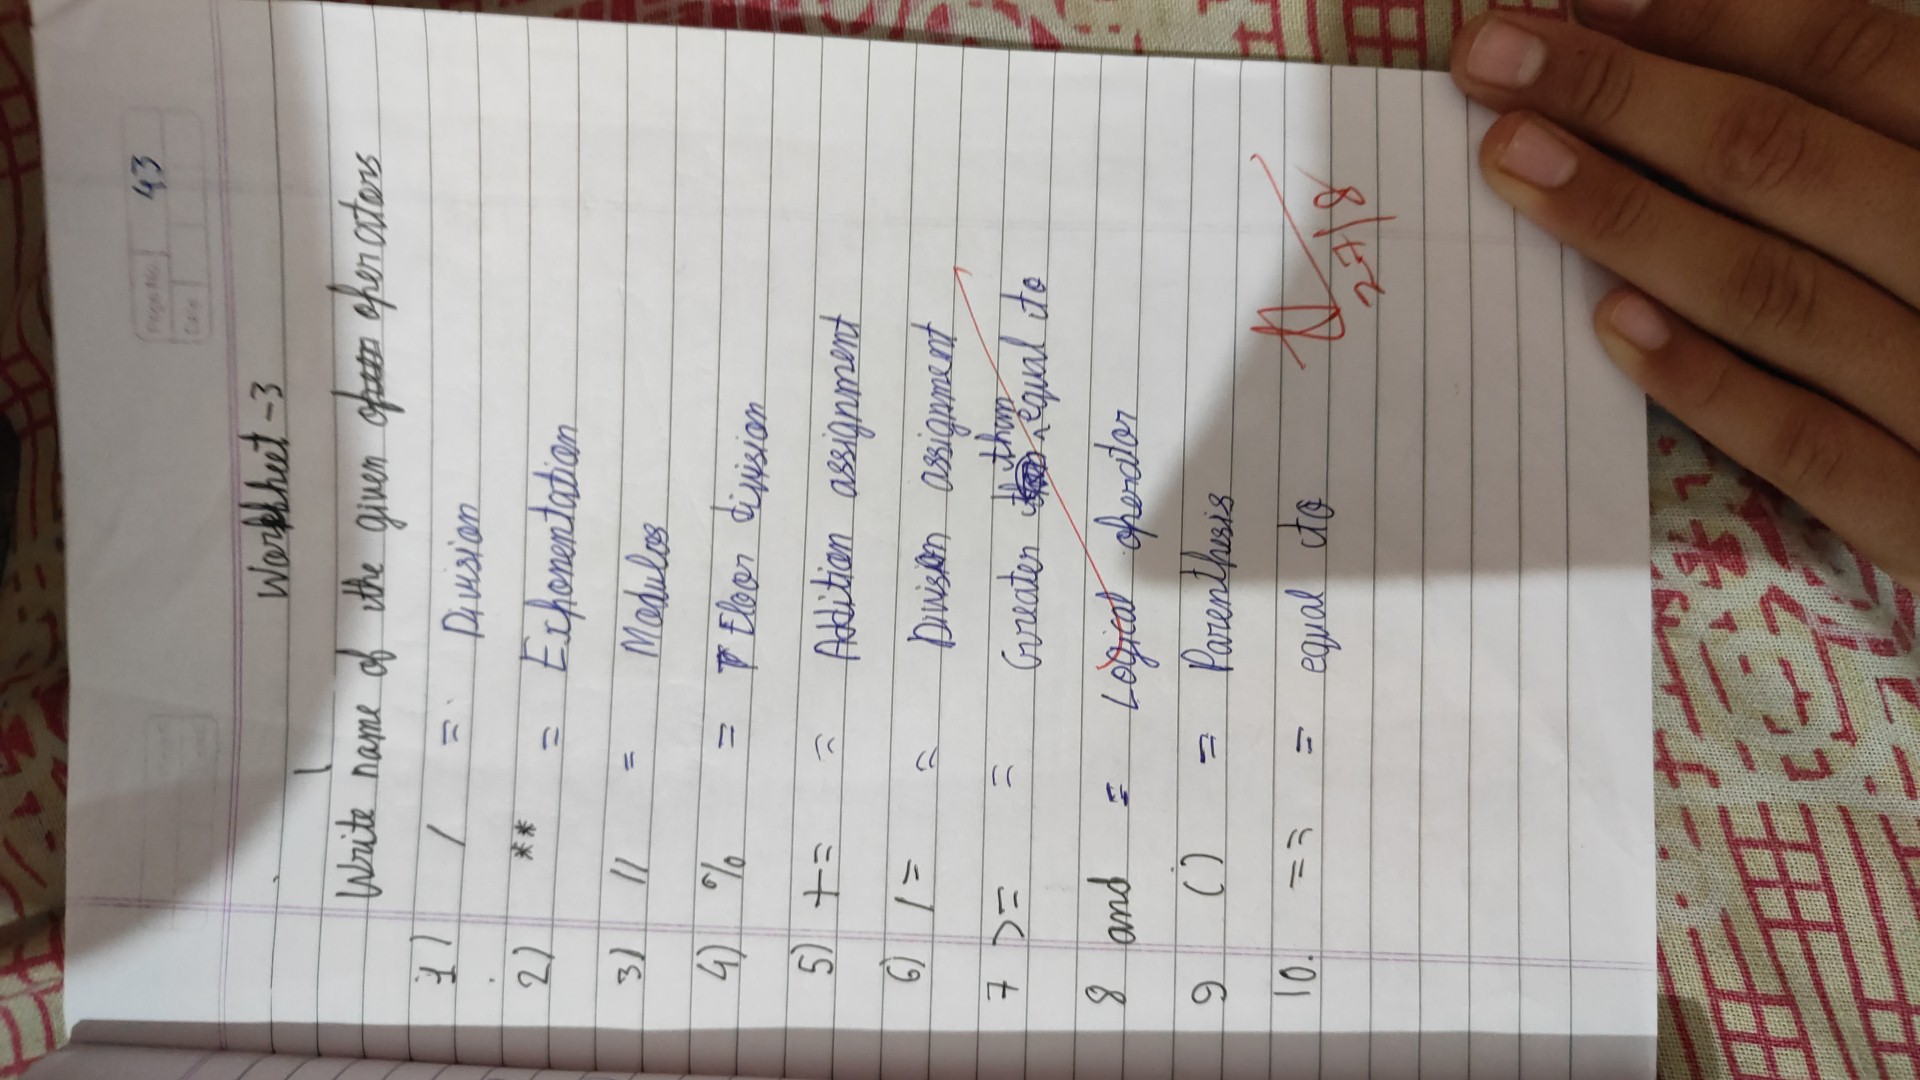 Page No. 43
Date
Worksheet - 3
Write name of the given operators
1) / = Division
2) ** = Exponentation
3) // = Modulos
4) % = Floor division
5) += = Addition assignment
6) /= = Division assignment
7 >= = Greater than equal to
8 and = Logical operator
9 () = Parenthisis
10. == = equal to
27/8